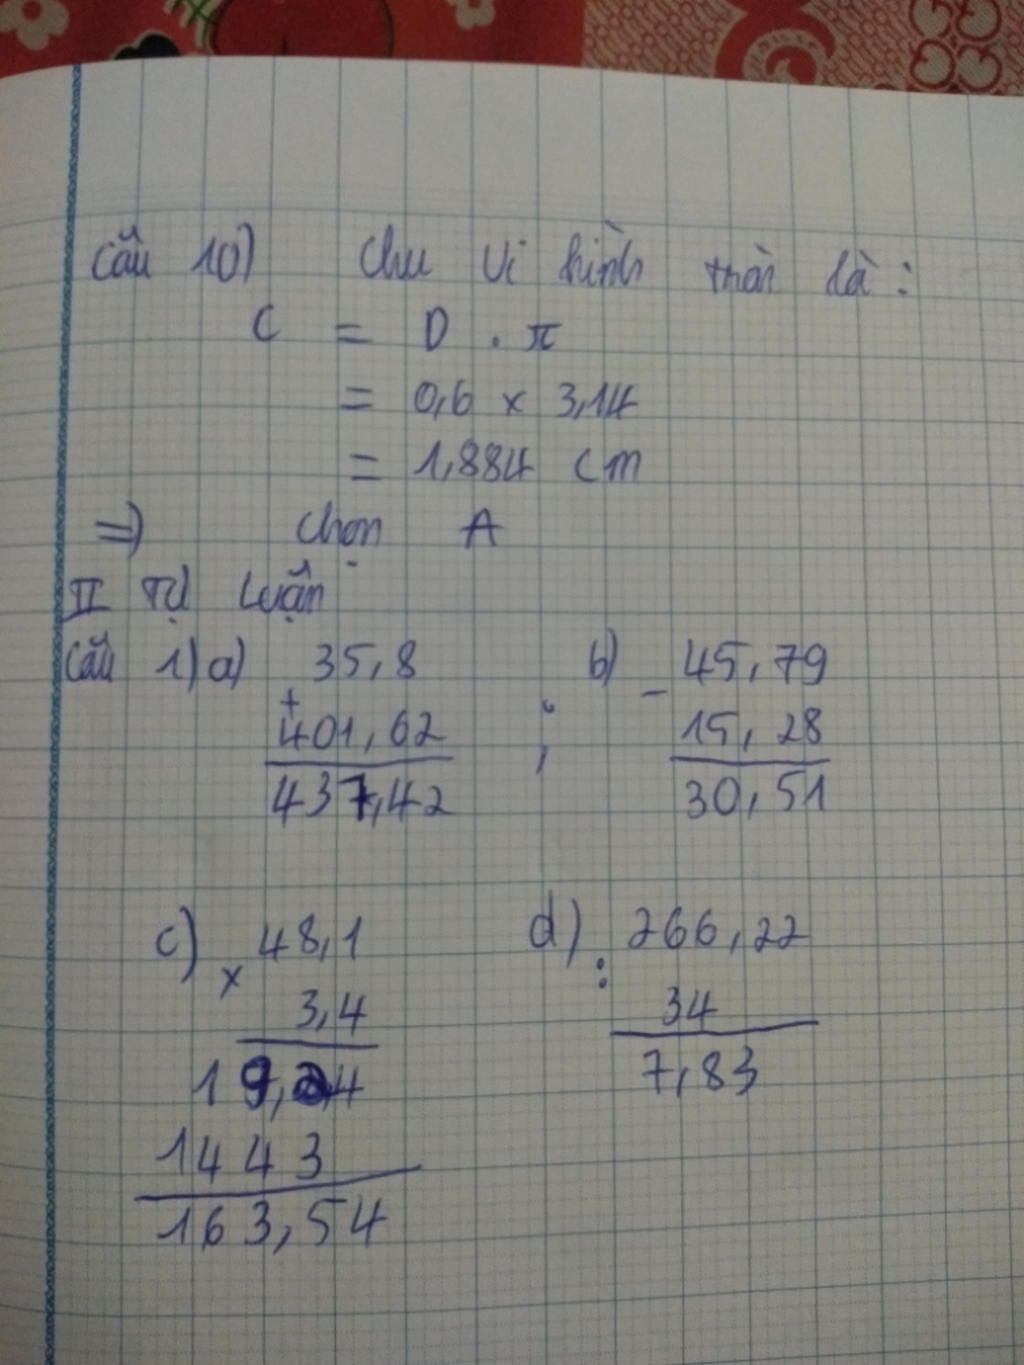 Câu 10) Chu vi hình tròn là :
C = D . π
= 0,6 x 3,14
= 1,884 cm
=) Chọn A
II Tự Luận
Câu 1) a) 35,8 ; b) 45,79
+ -
401,62 15,28
437,42 30,51
c) 48,1 d) 266,22
x :
3,4 34
19,24 7,83
1443
163,54